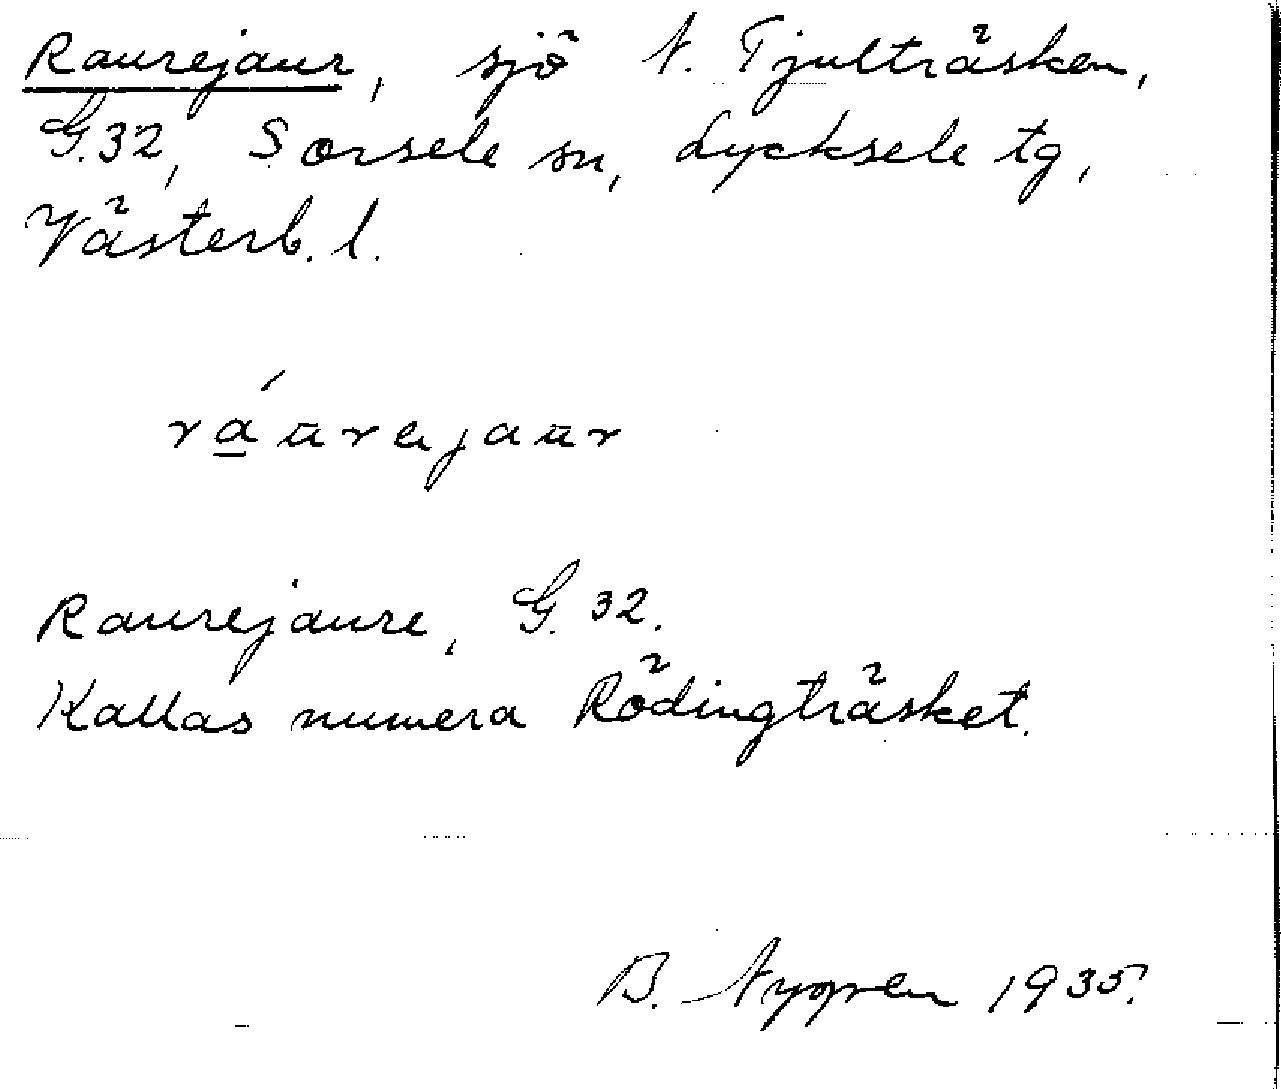 Raurejaur, sjö N. Tjulträsken,
G.32, Sorsele sn, Lycksele tg,
Västerb. l.
rá̱ūrejaūr
Raurejaure, G. 32.
Kallas numera Rödingträsket.
B. Nygren 1935.